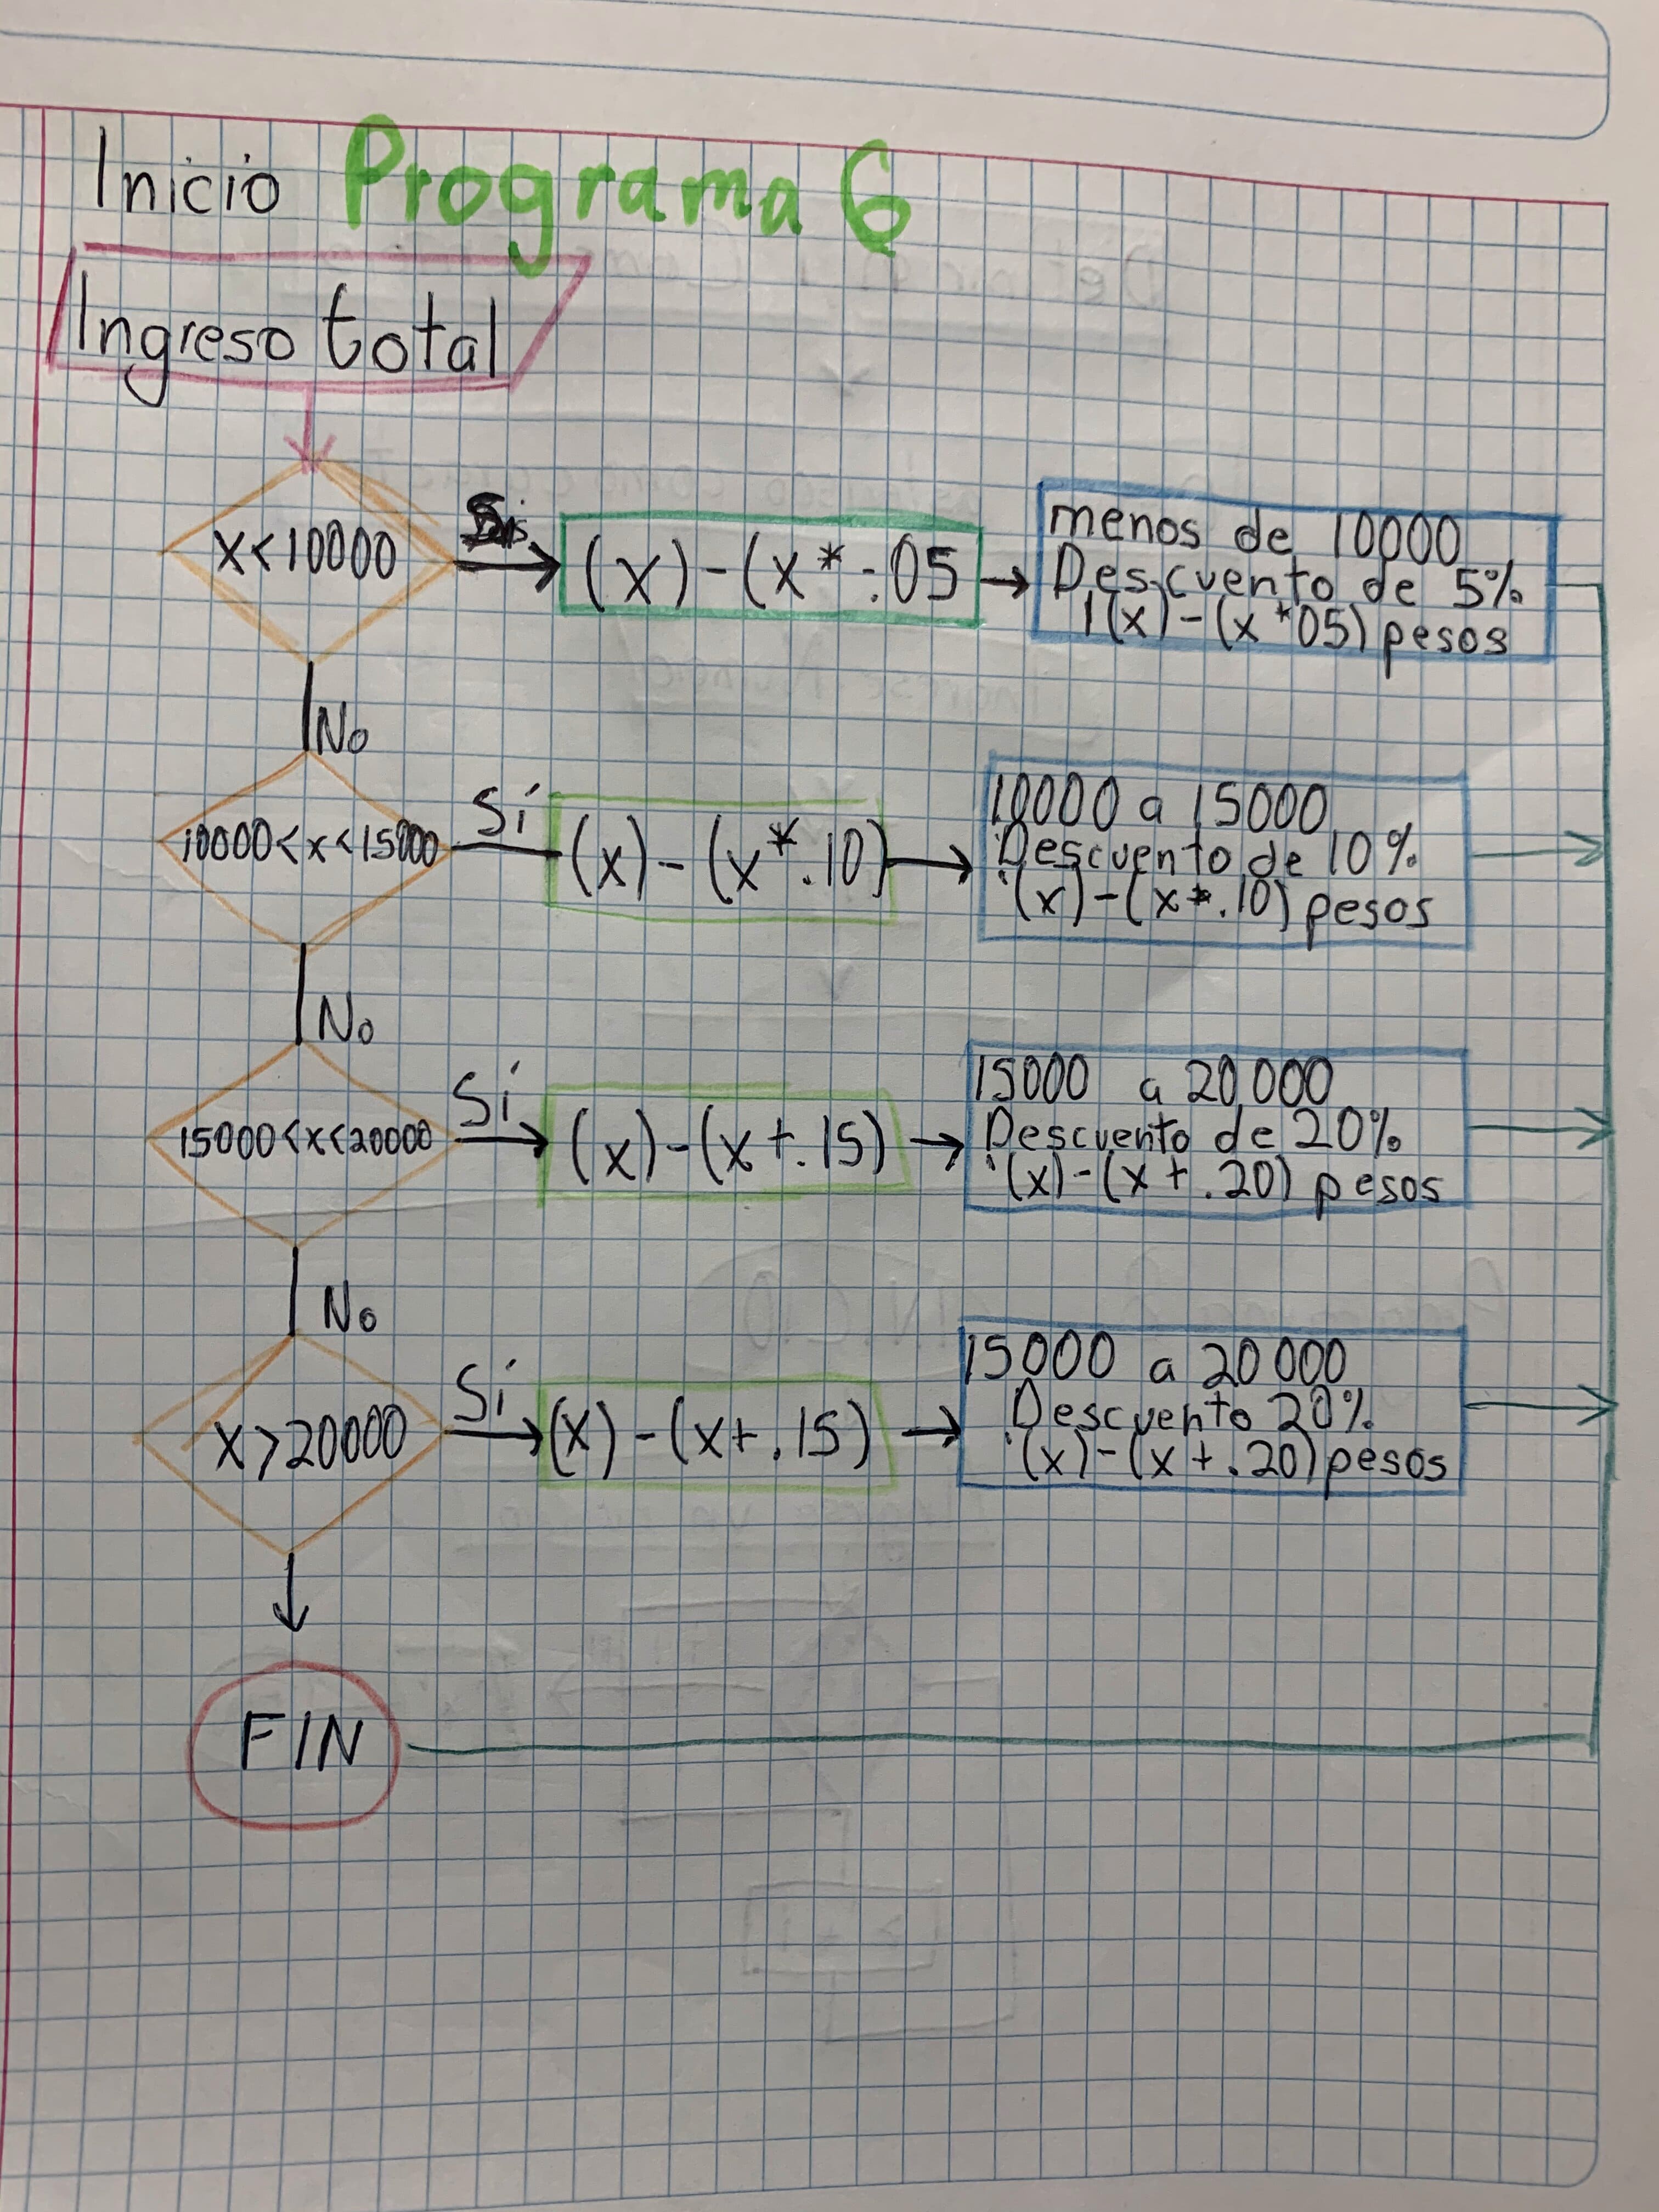 Inicio Programa 6
Ingreso total
x<10000
Si
(x)-(x*.05
menos de 10000
Descuento de 5%
(x)-(x*05) pesos
No
10000<x<15000
Sí
(x)-(x*.10)
10000 a 15000
Descuento de 10%
(x)-(x*.10) pesos
No
15000<x<20000
Sí
(x)-(x+.15)
15000 a 20000
Descuento de 20%
(x)-(x+.20) pesos
No
x>20000
Sí
(x)-(x+.15)
15000 a 20000
Descuento 20%
(x)-(x+.20) pesos
FIN